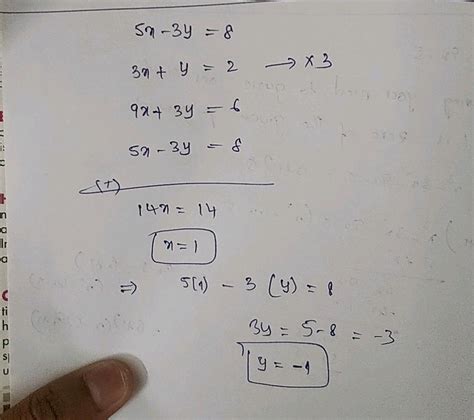 5x - 3y = 8
3x + y = 2 → × 3
9x + 3y = 6
5x - 3y = 8
(+)
14x = 14
x = 1
⇒ 5(1) - 3 (y) = 8
3y = 5 - 8 = -3
y = -1